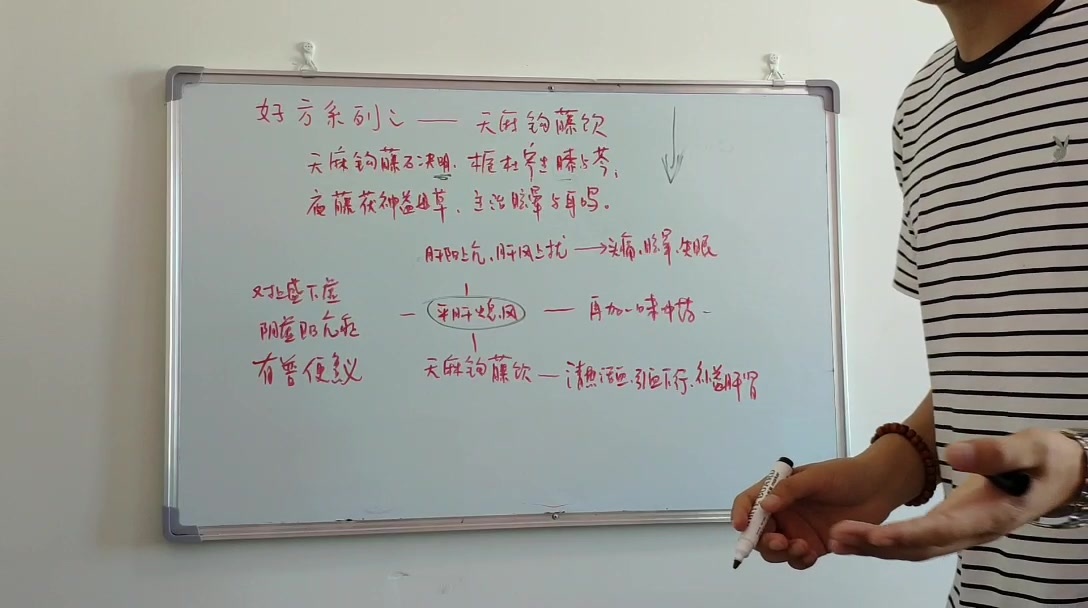 好方系列之——天麻钩藤饮
天麻钩藤石决明、栀杜寄生膝与芩、
夜藤茯神益母草、主治眩晕与耳鸣。
肝阳上亢、肝风上扰→头痛、眩晕、失眠
对上盛下虚
阴虚阳亢証
有普便義
平肝熄风
再加一味中药
天麻钩藤饮—清热活血、引血下行、补益肝肾